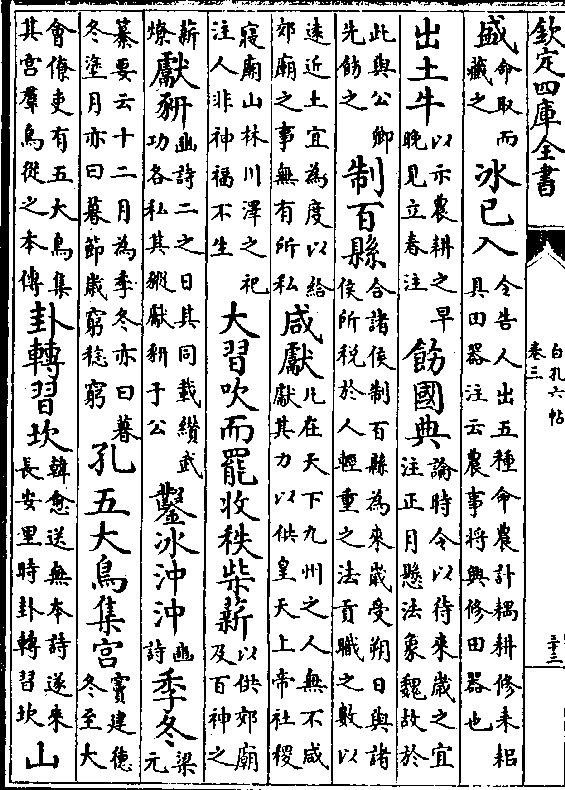 欽定四庫全書
白孔六帖
卷三
三十三
盛命取而藏之冰已入令告人出五種命農計耦耕修耒耜具田器注云農事將興修田器也
出土牛以示農耕之早晚見立春注飭國典論時令以待來歲之宜注正月懸法象魏故於
此與公卿先飭之制百縣合諸侯制百縣為來歲受朔日與諸侯所稅於人輕重之法貢職之數以
遠近土宜為度以給郊廟之事無有所私咸獻凡在天下九州之人無不咸獻其力以供皇天上帝社稷
寢廟山林川澤之祀注人非神福不生大習吹而罷收秩柴薪以供郊廟及百神之
薪燎獻豜豳詩二之日其同載纘武功各私其豵獻豜于公鑿冰沖沖豳詩季冬梁元
纂要云十二月為季冬亦曰暮冬塗月亦曰暮節歲窮稔窮孔五大鳥集宮竇建德冬至大
會僚吏有五大鳥集其宮羣鳥從之本傳卦轉習坎韓愈送無本詩遂來長安里時卦轉習坎山